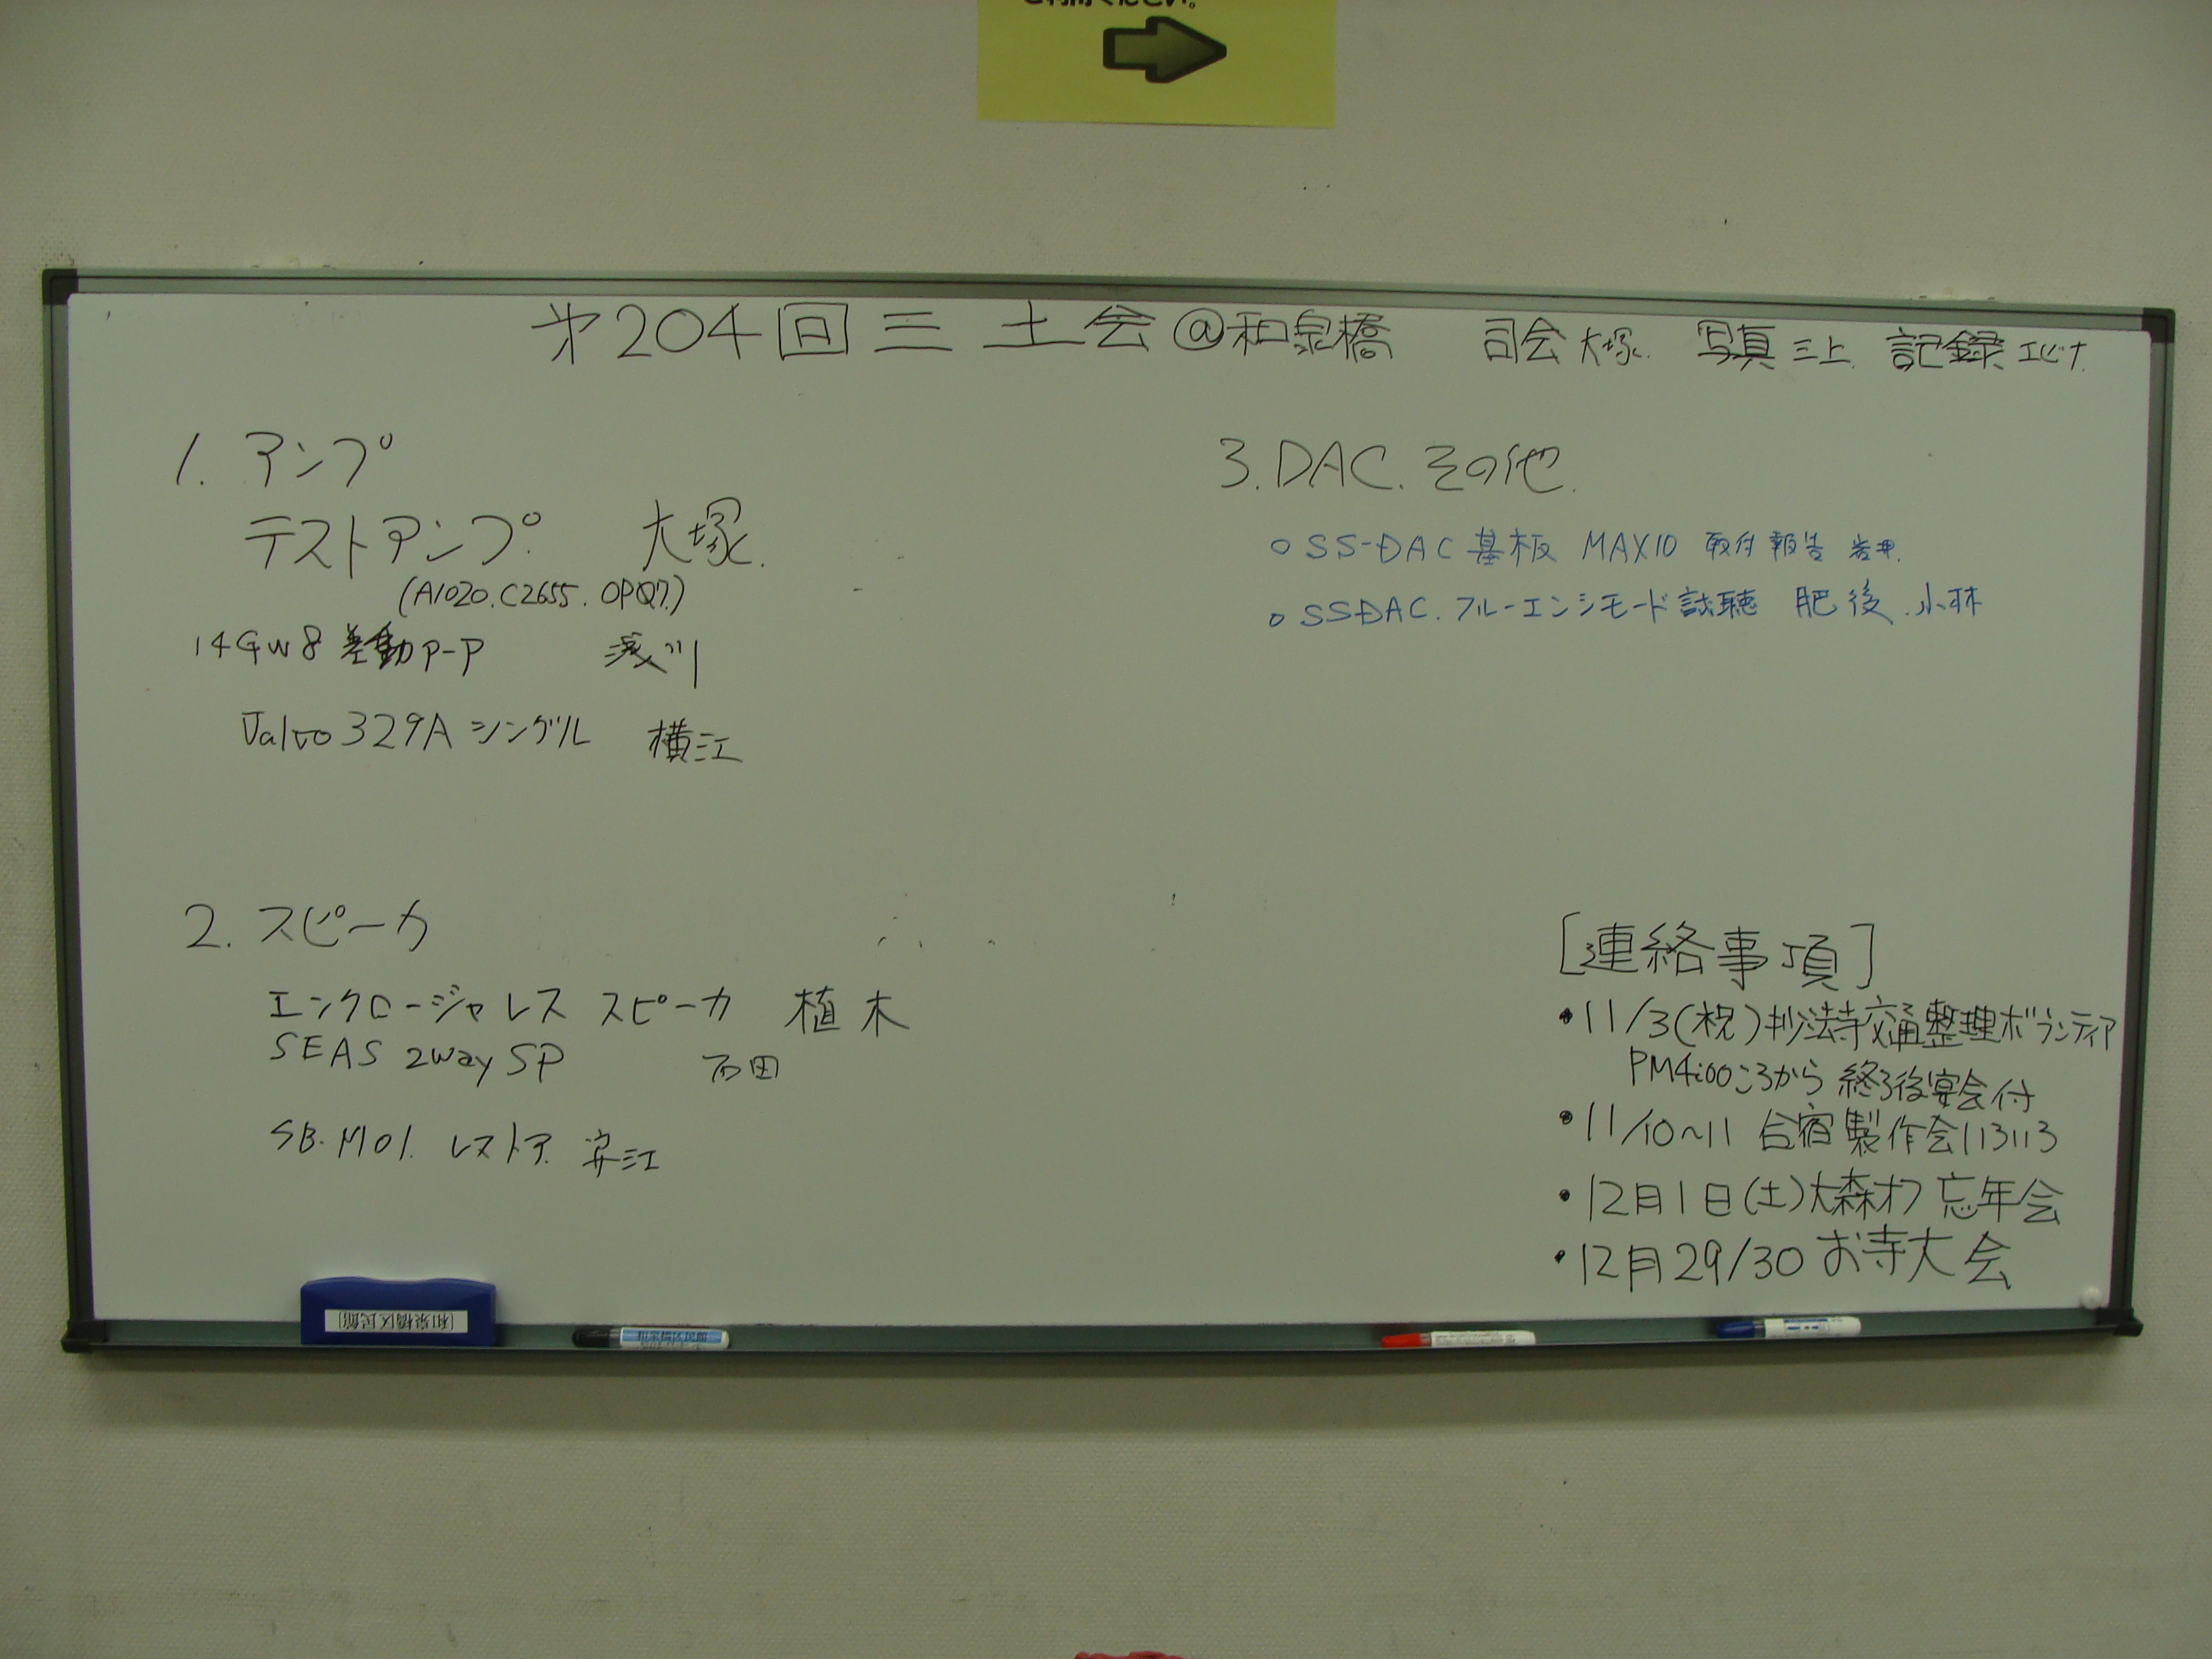 ご利用ください。
第204回 三土会@和泉橋 司会 大塚. 写真 三上. 記録 エビナ.
1. アンプ
テストアンプ. 大塚.
(A1020.C2655.OPQ7.)
14GW8 差動P-P 浅川
Valvo 329A シングル 横江
2. スピーカ
エンクロージャレス スピーカ 植木
SEAS 2way SP 百田
SB-M01. レストア. 安江
3. DAC. その他.
○ SS-DAC 基板 MAX10 取付 報告
○ SSDAC. フルーエンシモード試聴 肥後.小林
[連絡事項]
・11/3(祝)妙法寺交通整理ボランティア
PM4:00ころから 終了後宴会付
・11/10〜11 合宿製作会113113
・12月1日(土)大森オフ 忘年会
・12月29/30 お寺大会
(和泉橋区民館)